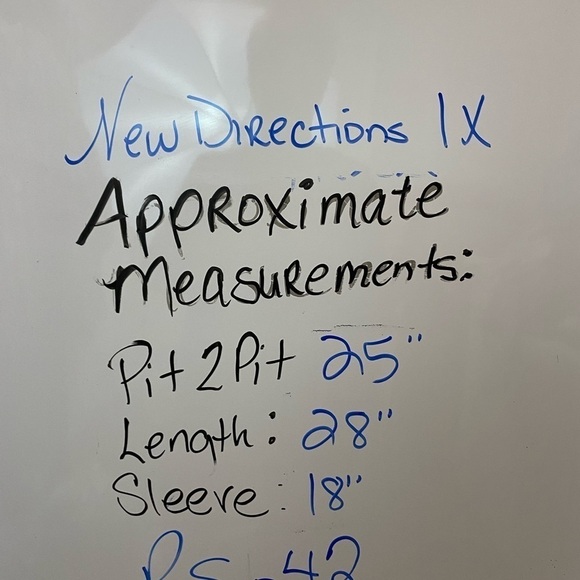 New Directions 1X
Approximate
Measurements:
Pit 2 Pit 25"
Length: 28"
Sleeve: 18"